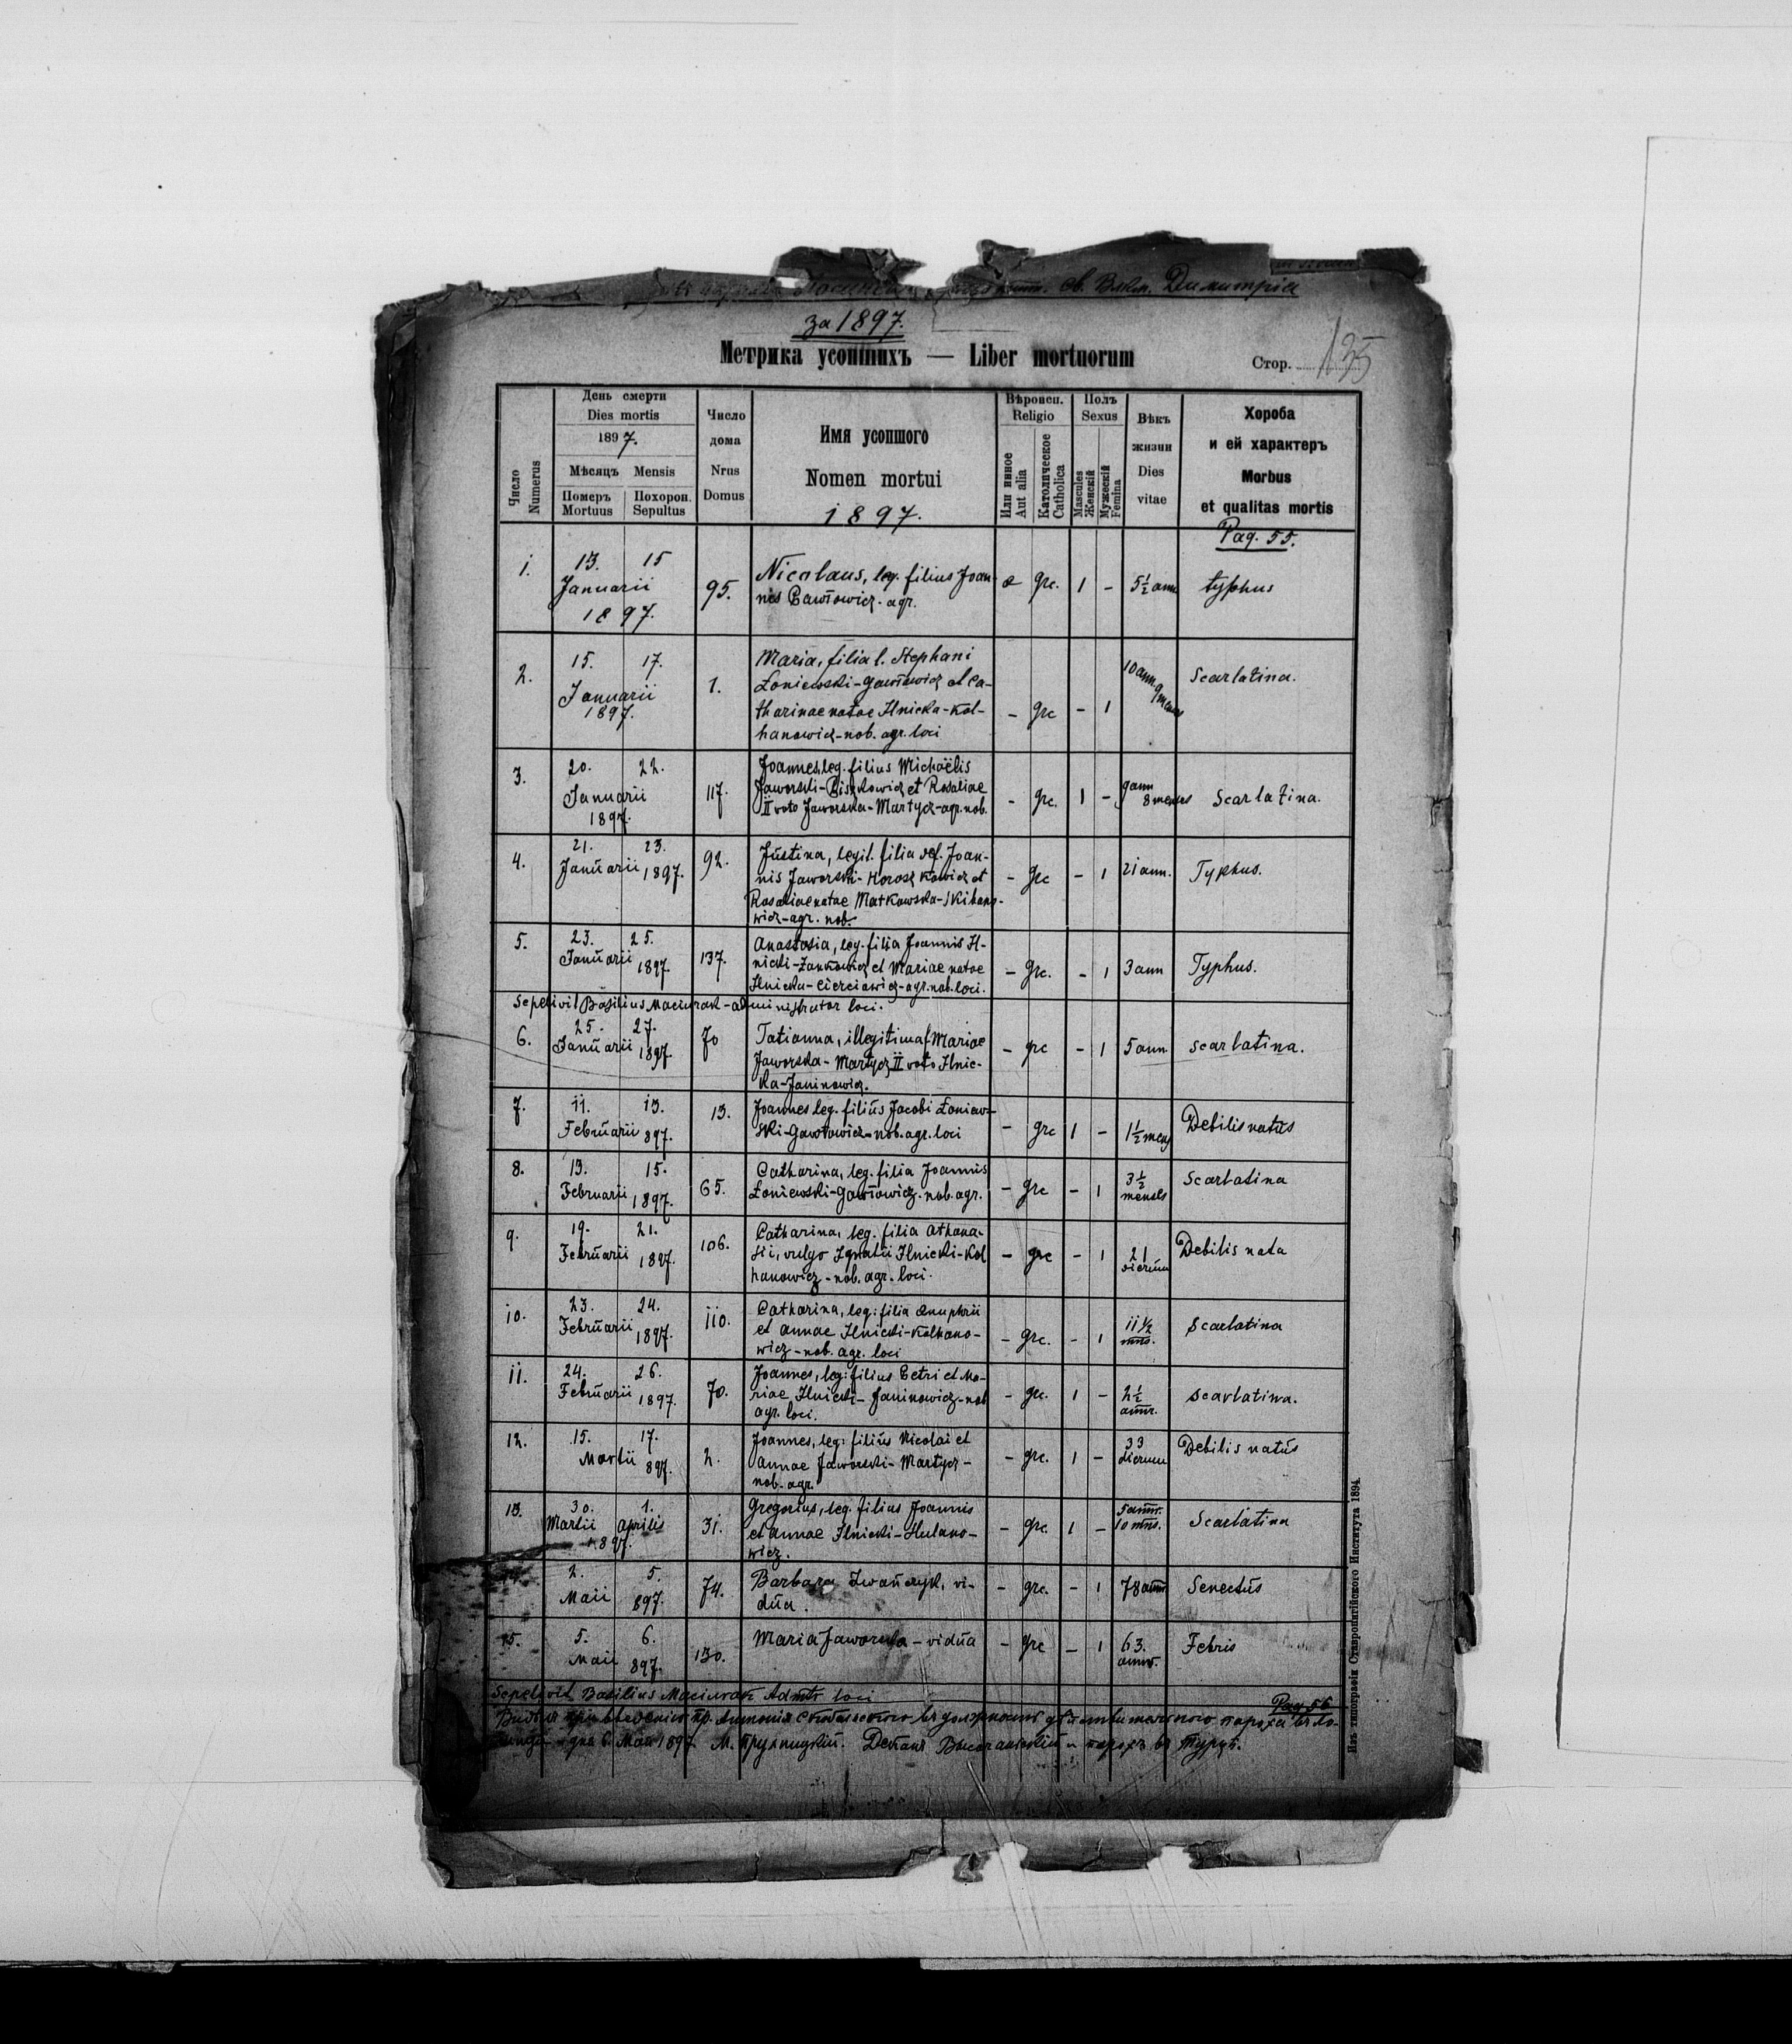 св. Вкмч. Димитрія
за 1897.
Метрика усопшихъ — Liber mortuorum
Стор. 135
Число
Numerus
День смерти
Dies mortis
1897.
Мѣсяцъ Mensis
Померъ Похорон.
Mortuus Sepultus
Число
дома
Nrus
Domus
Имя усопшого
Nomen mortui
1897.
Вѣроисп.
Religio
Или инное
Aut alia
Католическое
Catholica
Полъ
Sexus
Mascules
Женскій
Мужескій
Femina
Вѣкъ
жизни
Dies
vitae
Хороба
и ей характеръ
Morbus
et qualitas mortis
Pag. 55.
1. 13. 15 Januarii 1897. 95.
Nicolaus, leg. filius Joan-
nis Pawłowicz - agr.
gre. 1 - 5½ ann typhus
2. 15. 17. Januarii 1897. 1.
Maria, filia l. Stephani
Łoniewski-Gawłowicz et Ca-
tharinae natae Ilnicka-Kol-
hanowicz-nob. agr. loci
- grc - 1 10 ann 9 menses Scarlatina.
3. 20. 22. Januarii 1897. 117.
Joannes, leg. filius Michaëlis
Jaworski-Piszkowicz et Rosaliae
II voto Jaworska-Martycz-agr. nob.
- grc. 1 - 9 ann 8 menses Scarlatina.
4. 21. 23. Januarii 1897. 92.
Justina, legit. filia def. Joan-
nis Jaworski-Horoszkowicz et
Rosaliae natae Matkowska-Skibano-
wicz-agr. nob.
- grc - 1 21 ann. Typhus.
5. 23. 25. Januarii 1897. 137.
Anastasia, leg. filia Joannis Il-
nicki-Zankowicz et Mariae natae
Ilnicka-Cierciawicz-agr. nob. loci.
- grc. - 1 3 ann Typhus.
Sepelivit Basilius Maciurak-administrator loci.
6. 25. 27. Januarii 1897. 70
Tatianna, illegitima f. Mariae
Jaworska-Martycz II voto Ilnic-
ka-Janinowicz.
- grc - 1 5 ann scarlatina.
7. 11. 13. Februarii 897. 13.
Joannes leg. filius Jacobi Łoniew-
ski-Gawłowicz-nob. agr. loci
- grc 1 - 1½ mens Debilis natus
8. 13. 15. Februarii 1897. 65.
Catharina, leg. filia Joannis
Łoniewski-Gawłowicz. nob. agr.
- grc - 1 3½ menses Scarlatina
9. 19. 21. Februarii 1897. 106.
Catharina, leg. filia Athana-
sii, vulgo Ignatii Ilnicki-Kol
hanowicz-nob. agr. loci.
- grc - 1 21 dierum Debilis nata
10. 23. 24. Februarii 1897. 110.
Catharina, leg: filia Onuphrii
et Annae Ilnicki-Kolhano-
wicz-nob. agr. loci
- grc. - 1 11½ mns. Scarlatina
11. 24. 26. Februarii 1897. 70.
Joannes, leg: filius Petri et Ma-
riae Ilnicki-Janinowicz-nob
agr. loci.
- grc. 1 - 2½ annr. scarlatina.
12. 15. 17. Martii 897. 2.
Joannes, leg: filius Nicolai et
Annae Jaworski-Martycz-
nob. agr.
- grc. 1 - 33 dierum Debilis natus
13. 30. 1. Martii Aprilis 1897. 31.
Gregorius, leg. filius Joannis
et Annae Ilnicki-Hulano-
wicz.
- grc 1 - 5 annr. 10 mns. Scarlatina
2. 5. Maii 897. 74.
Barbara Iwańczyk, vi-
dua.
- grc. - 1 78 annr Senectus
15. 5. 6. Maii 897. 130.
Maria Jaworska - vidua
- grc - 1 63. annr. Febris
Sepelivit Basilius Maciurak Admtr loci
Pag 56
дня 6. Мая 1897. М. Деканъ и парохъ въ Турцѣ.
Изъ типографіи Ставропигійского Института 1894.